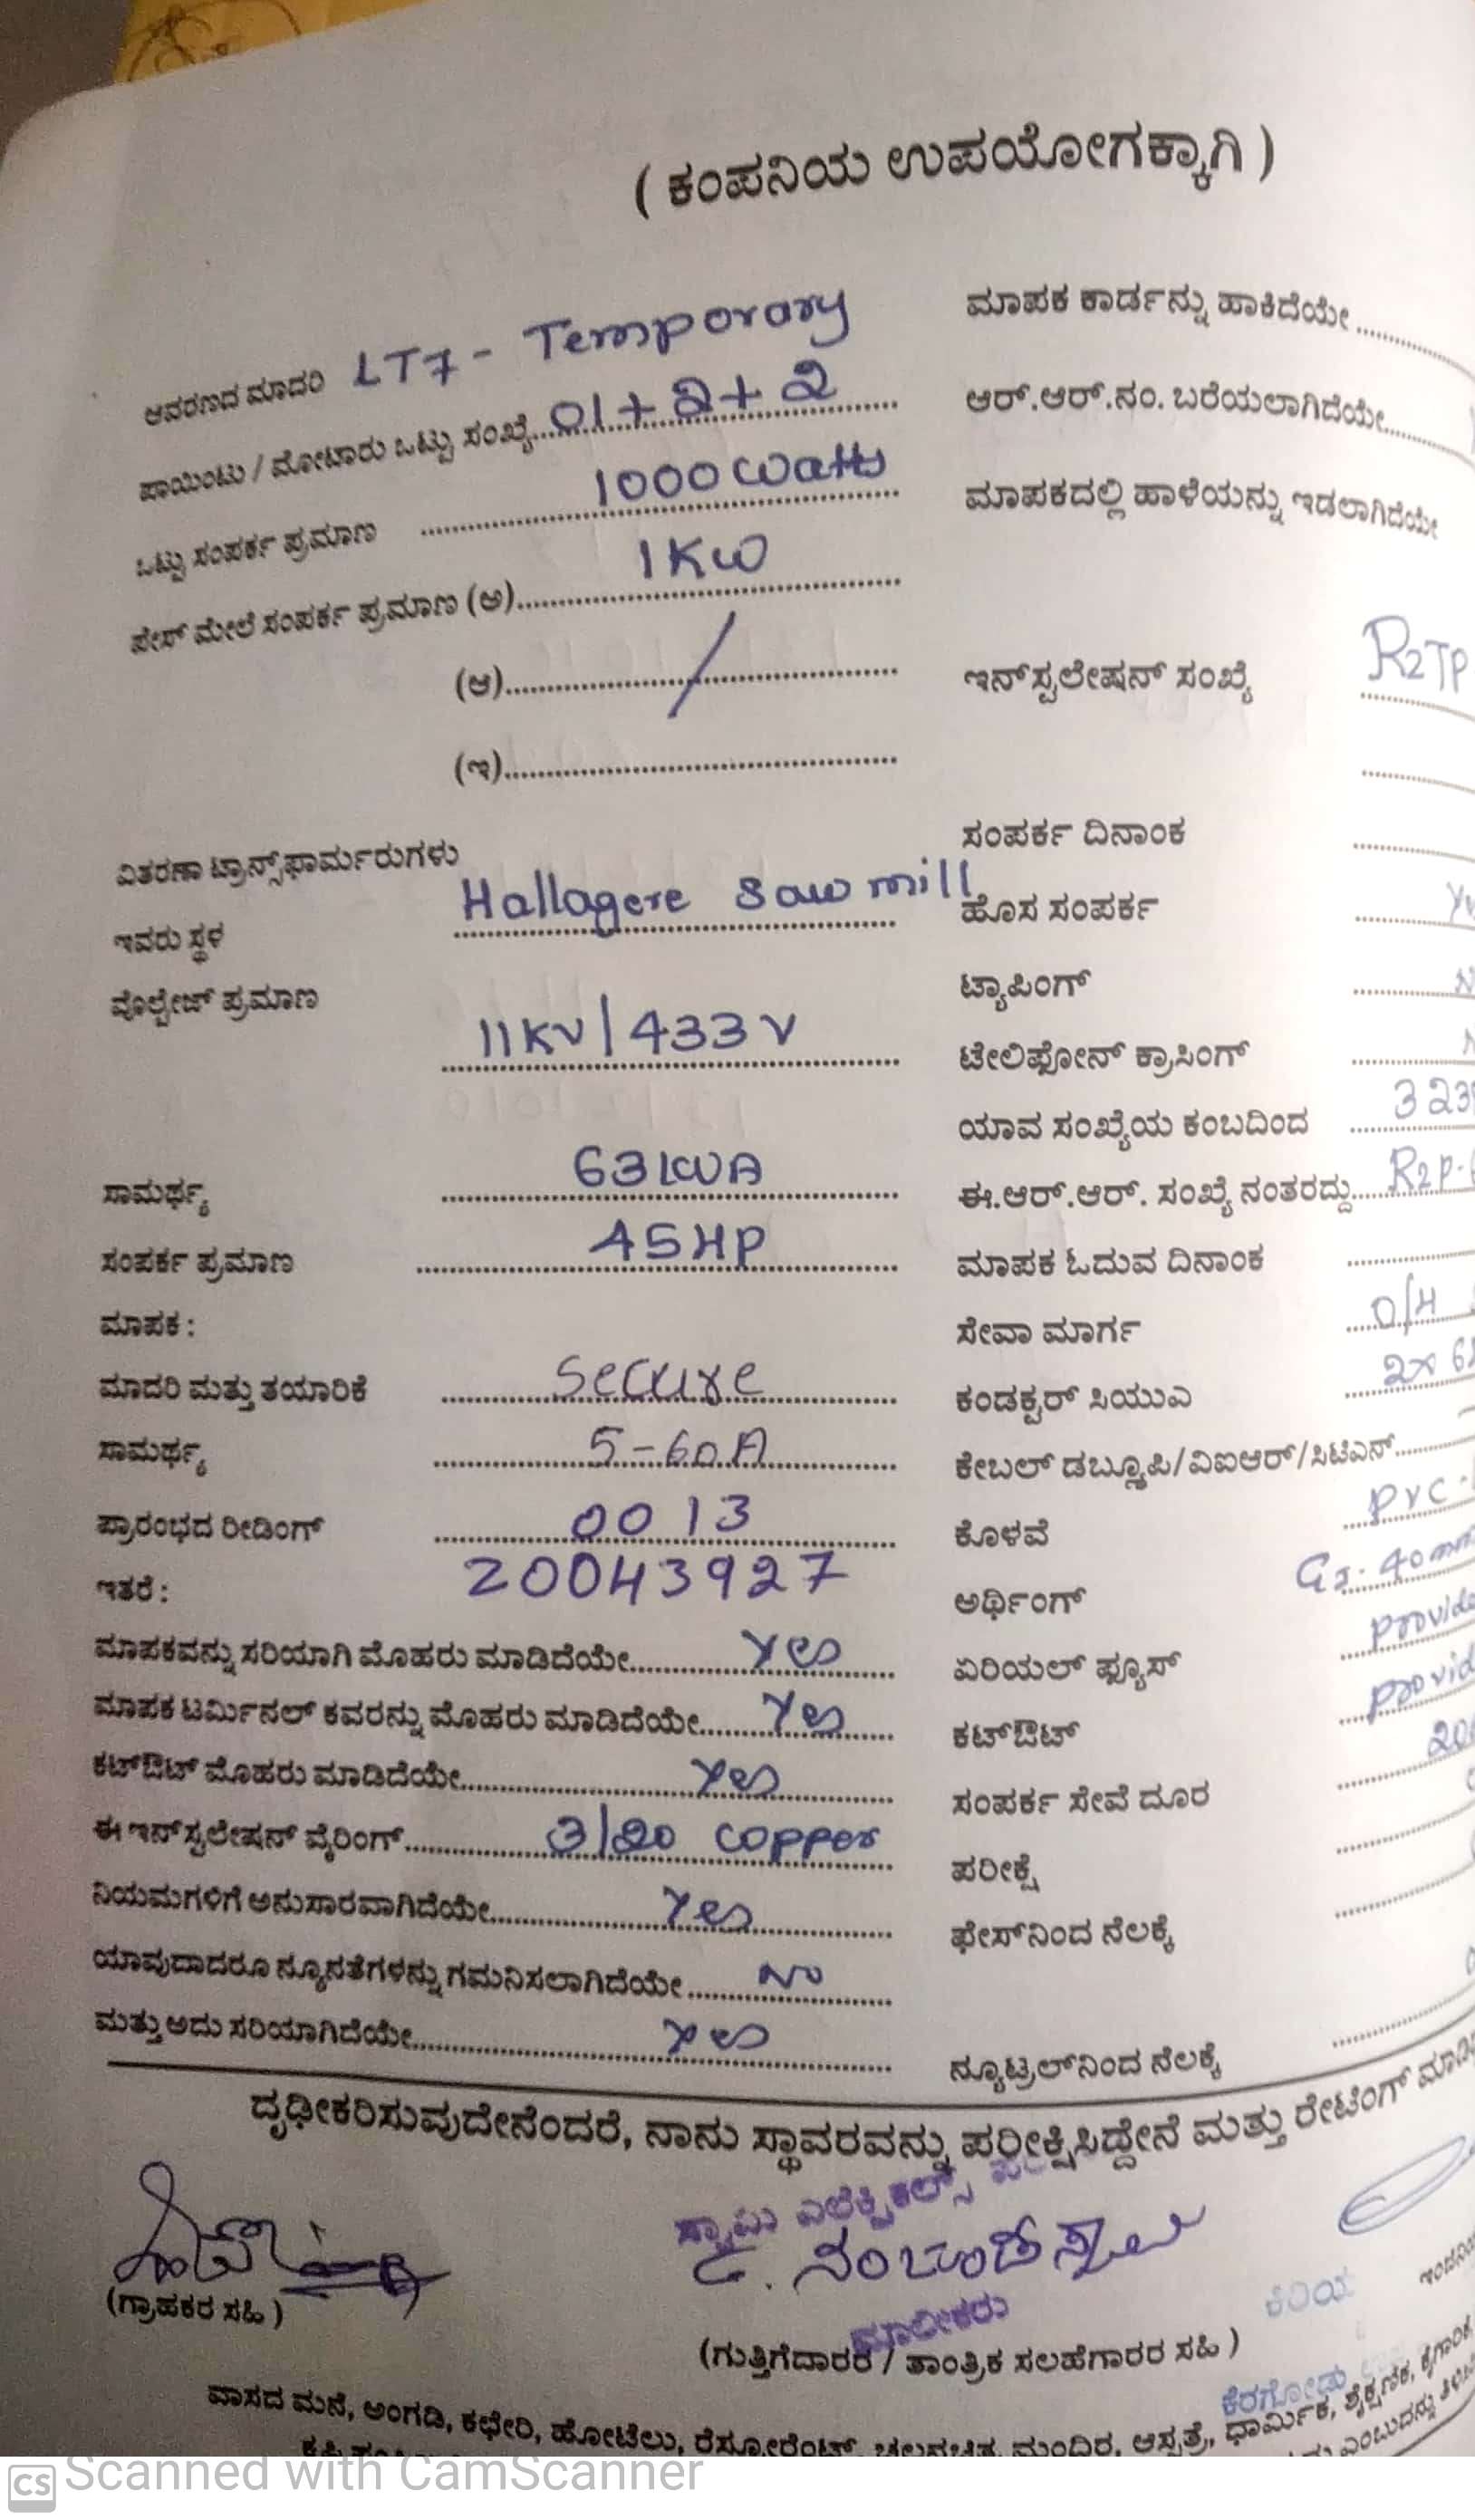 ( ಕಂಪನಿಯ ಉಪಯೋಗಕ್ಕಾಗಿ )
ಆವರಣದ ಮಾದರಿ LT7 - Temporary
ಪಾಯಿಂಟು / ಮೋಟಾರು ಒಟ್ಟು ಸಂಖ್ಯೆ 01 + 2 + 2
ಒಟ್ಟು ಸಂಪರ್ಕ ಪ್ರಮಾಣ 1000 Watts
ಪೇಸ್ ಮೇಲೆ ಸಂಪರ್ಕ ಪ್ರಮಾಣ (ಅ) 1 KW
(ಆ) /
(ಇ)
ವಿತರಣಾ ಟ್ರಾನ್ಸ್‌ಫಾರ್ಮರುಗಳು
ಇವರು ಸ್ಥಳ Hallagere Saw mill
ವೊಲ್ಟೇಜ್ ಪ್ರಮಾಣ 11KV / 433 V
ಸಾಮರ್ಥ್ಯ 63 KVA
ಸಂಪರ್ಕ ಪ್ರಮಾಣ 45 HP
ಮಾಪಕ :
ಮಾದರಿ ಮತ್ತು ತಯಾರಿಕೆ Secure
ಸಾಮರ್ಥ್ಯ 5-60A
ಪ್ರಾರಂಭದ ರೀಡಿಂಗ್ 0013
ಇತರೆ : 20043927
ಮಾಪಕವನ್ನು ಸರಿಯಾಗಿ ಮೊಹರು ಮಾಡಿದೆಯೇ Yes
ಮಾಪಕ ಟರ್ಮಿನಲ್ ಕವರನ್ನು ಮೊಹರು ಮಾಡಿದೆಯೇ Yes
ಕಟ್‌ಔಟ್ ಮೊಹರು ಮಾಡಿದೆಯೇ Yes
ಈ ಇನ್‌ಸ್ಟಲೇಷನ್ ವೈರಿಂಗ್ 3/20 copper
ನಿಯಮಗಳಿಗೆ ಅನುಸಾರವಾಗಿದೆಯೇ Yes
ಯಾವುದಾದರೂ ನ್ಯೂನತೆಗಳನ್ನು ಗಮನಿಸಲಾಗಿದೆಯೇ No
ಮತ್ತು ಅದು ಸರಿಯಾಗಿದೆಯೇ Yes
ಮಾಪಕ ಕಾರ್ಡನ್ನು ಹಾಕಿದೆಯೇ
ಆರ್.ಆರ್.ನಂ. ಬರೆಯಲಾಗಿದೆಯೇ
ಮಾಪಕದಲ್ಲಿ ಹಾಳೆಯನ್ನು ಇಡಲಾಗಿದೆಯೇ
ಇನ್‌ಸ್ಟಲೇಷನ್ ಸಂಖ್ಯೆ R2TP
ಸಂಪರ್ಕ ದಿನಾಂಕ
ಹೊಸ ಸಂಪರ್ಕ
ಟ್ಯಾಪಿಂಗ್
ಟೇಲಿಫೋನ್ ಕ್ರಾಸಿಂಗ್
ಯಾವ ಸಂಖ್ಯೆಯ ಕಂಬದಿಂದ 323
ಈ.ಆರ್.ಆರ್. ಸಂಖ್ಯೆ ನಂತರದ್ದು R2P-
ಮಾಪಕ ಓದುವ ದಿನಾಂಕ
ಸೇವಾ ಮಾರ್ಗ O/H
ಕಂಡಕ್ಟರ್ ಸಿಯುಎ 2x6
ಕೇಬಲ್ ಡಬ್ಲ್ಯೂಪಿ/ವಿಐಆರ್/ಸಿಟಿಎನ್
ಕೊಳವೆ PVC-
ಅರ್ಥಿಂಗ್ GI- 40mm
ಏರಿಯಲ್ ಫ್ಯೂಸ್ provide
ಕಟ್‌ಔಟ್ provid
ಸಂಪರ್ಕ ಸೇವೆ ದೂರ 20
ಪರೀಕ್ಷೆ
ಫೇಸ್‌ನಿಂದ ನೆಲಕ್ಕೆ
ನ್ಯೂಟ್ರಲ್‌ನಿಂದ ನೆಲಕ್ಕೆ
ದೃಢೀಕರಿಸುವುದೇನೆಂದರೆ, ನಾನು ಸ್ಥಾವರವನ್ನು ಪರೀಕ್ಷಿಸಿದ್ದೇನೆ ಮತ್ತು ರೇಟಿಂಗ್
ಸ್ವಾಮಿ ಎಲೆಕ್ಟ್ರಿಕಲ್ಸ್
ಮಾಲೀಕರು
(ಗ್ರಾಹಕರ ಸಹಿ )
(ಗುತ್ತಿಗೆದಾರರ / ತಾಂತ್ರಿಕ ಸಲಹೆಗಾರರ ಸಹಿ )
ಕಿರಿಯ
ಕೆರಗೋಡು
ವಾಸದ ಮನೆ, ಅಂಗಡಿ, ಕಛೇರಿ, ಹೋಟೆಲು, ರೆಸ್ಟೋರೆಂಟ್, ಚಲನಚಿತ್ರ ಮಂದಿರ, ಆಸ್ಪತ್ರೆ, ಧಾರ್ಮಿಕ, ಶೈಕ್ಷಣಿಕ, ಕೈಗಾರಿಕೆ
ಎಂಬುದನ್ನು
CS Scanned with CamScanner